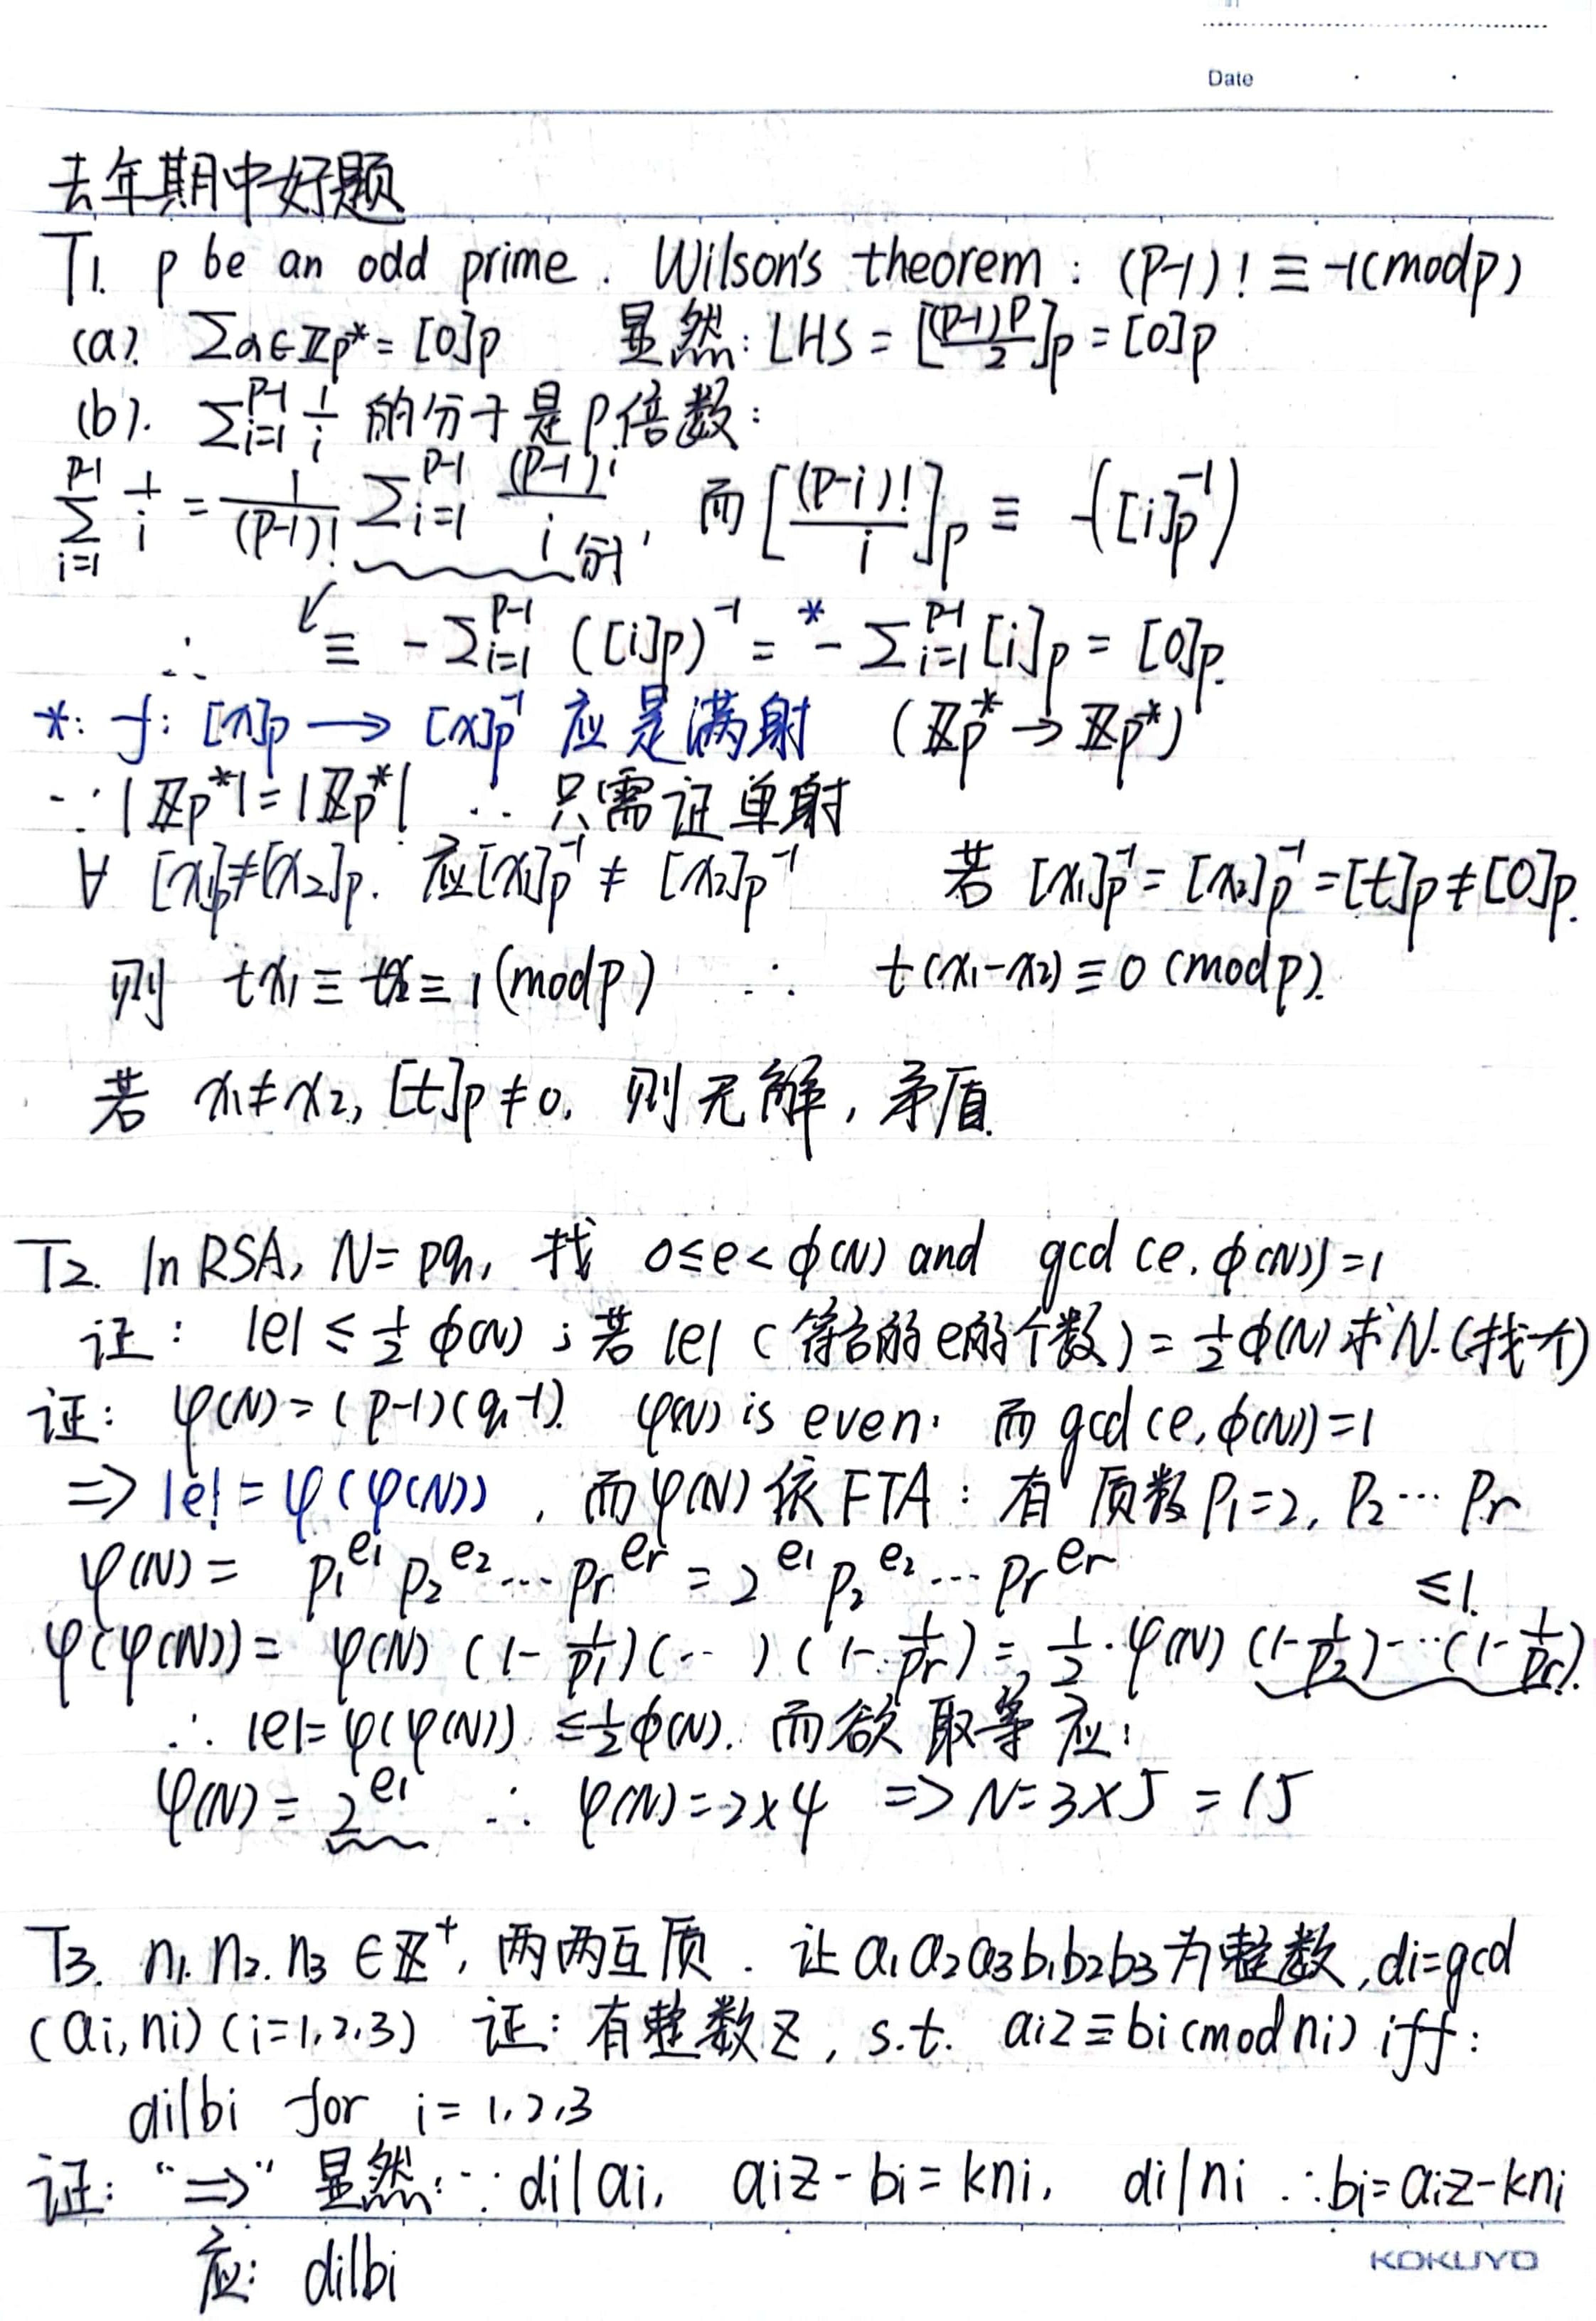 Date
去年期中好题
T1. p be an odd prime. Wilson's theorem: (P-1)! ≡ -1(mod p)
(a). Σa∈Zp* = [0]p 显然: LHS = [(P-1)P/2]p = [0]p
(b). Σ_{i=1}^{P-1} 1/i 的分子是P倍数:
Σ_{i=1}^{P-1} 1/i = 1/(P-1)! Σ_{i=1}^{P-1} (P-1)!/i 分子, 而 [(P-i)!/i]p ≡ -([i]p^{-1})
∴ ≡ -Σ_{i=1}^{P-1} ([i]p)^{-1} =* -Σ_{i=1}^{P-1} [i]p = [0]p.
*: f: [x]p → [x]p^{-1} 应是满射 (Zp* → Zp*)
∵ |Zp*| = |Zp*| ∴ 只需证单射
∀ [x1]p≠[x2]p. 应[x1]p^{-1} ≠ [x2]p^{-1} 若 [x1]p^{-1} = [x2]p^{-1} = [t]p ≠ [0]p.
则 tx1 ≡ tx2 ≡ 1 (mod p) ∴ t(x1-x2) ≡ 0 (mod p).
若 x1≠x2, [t]p ≠ 0. 则无解, 矛盾.
T2. In RSA, N=pq, 找 0≤e<ϕ(N) and gcd(e, ϕ(N))=1
证: |e| ≤ 1/2 ϕ(N); 若 |e| (符合的e的个数) = 1/2 ϕ(N) 求N.(找一个)
证: φ(N) = (p-1)(q-1). φ(N) is even. 而 gcd(e, ϕ(N))=1
=> |e| = φ(φ(N)), 而φ(N) 依 FTA: 有 质数 P1=2, P2 ⋯ Pr
φ(N) = P1^{e1} P2^{e2} ⋯ Pr^{er} = 2^{e1} P2^{e2} ⋯ Pr^{er} ≤1.
φ(φ(N)) = φ(N) (1-1/p1)(⋯)(1-1/pr) = 1/2·φ(N) (1-1/p2)⋯(1-1/pr).
∴ |e| = φ(φ(N)) ≤ 1/2 ϕ(N). 而欲取等应:
φ(N) = 2^{e1} ∴ φ(N) = 2×4 => N = 3×5 = 15
T3. n1. n2. n3 ∈ Z⁺, 两两互质. 让 a1 a2 a3 b1 b2 b3 为整数, di=gcd
(ai, ni) (i=1,2,3) 证: 有整数z, s.t. aiz ≡ bi (mod ni) iff:
di|bi for i = 1,2,3
证: "=>" 显然: ∵ di|ai, aiz - bi = kni, di|ni ∴ bi = aiz - kni
应: di|bi
KOKUYO